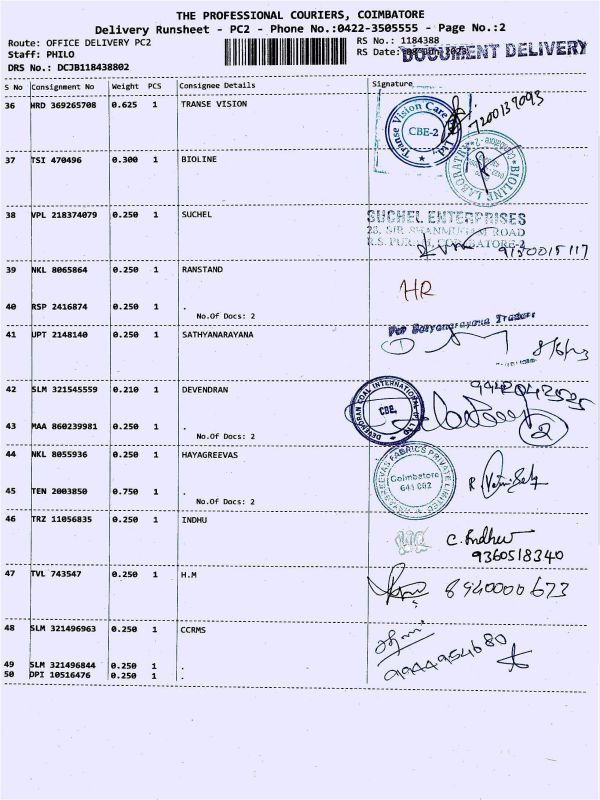 THE PROFESSIONAL COURIERS, COIMBATORE
Delivery Runsheet - PC2 - Phone No.:0422-3505555 - Page No.:2
Route: OFFICE DELIVERY PC2
Staff: PHILO
DRS No.: DCJB118438802
RS No.: 1184388
RS Date:
DOCUMENT DELIVERY
S No Consignment No Weight PCS Consignee Details Signature
36 HRD 369265708 0.625 1 TRANSE VISION
Transe Vision Care
CBE-2
7200139093
37 TSI 470496 0.300 1 BIOLINE
BIOLINE LABORATORY
38 VPL 218374079 0.250 1 SUCHEL
SUCHEL ENTERPRISES
25, SIR SHANMUGAM ROAD
R.S. PURAM, COIMBATORE-2
9150015117
39 NKL 8065864 0.250 1 RANSTAND
HR
40 RSP 2416874 0.250 1 .
No.Of Docs: 2
41 UPT 2148140 0.250 1 SATHYANARAYANA
For Satyanarayana Traders
1
8/6/23
42 SLM 321545559 0.210 1 DEVENDRAN
DEVENDRAN COAL INTERNATIONAL
CBE.
43 MAA 860239981 0.250 1 .
No.Of Docs: 2
2
44 NKL 8055936 0.250 1 HAYAGREEVAS
HAYAGREEVAS FABRICS PRIVATE LIMITED
Coimbatore
641 002
45 TEN 2003850 0.750 1 .
No.Of Docs: 2
46 TRZ 11056835 0.250 1 INDHU
C. Indhu
9360518340
47 TVL 743547 0.250 1 H.M
8940000673
48 SLM 321496963 0.250 1 CCRMS
9444954680
49 SLM 321496844 0.250 1 .
50 DPI 10516476 0.250 1 .